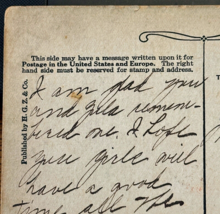 This side may have a message written upon it for
Postage in the United States and Europe. The right
hand side must be reserved for stamp and address.
Published by H. G. Z. & Co.
I am glad you
and remem-
bered me. I hope
you girls will
have a good
time all the